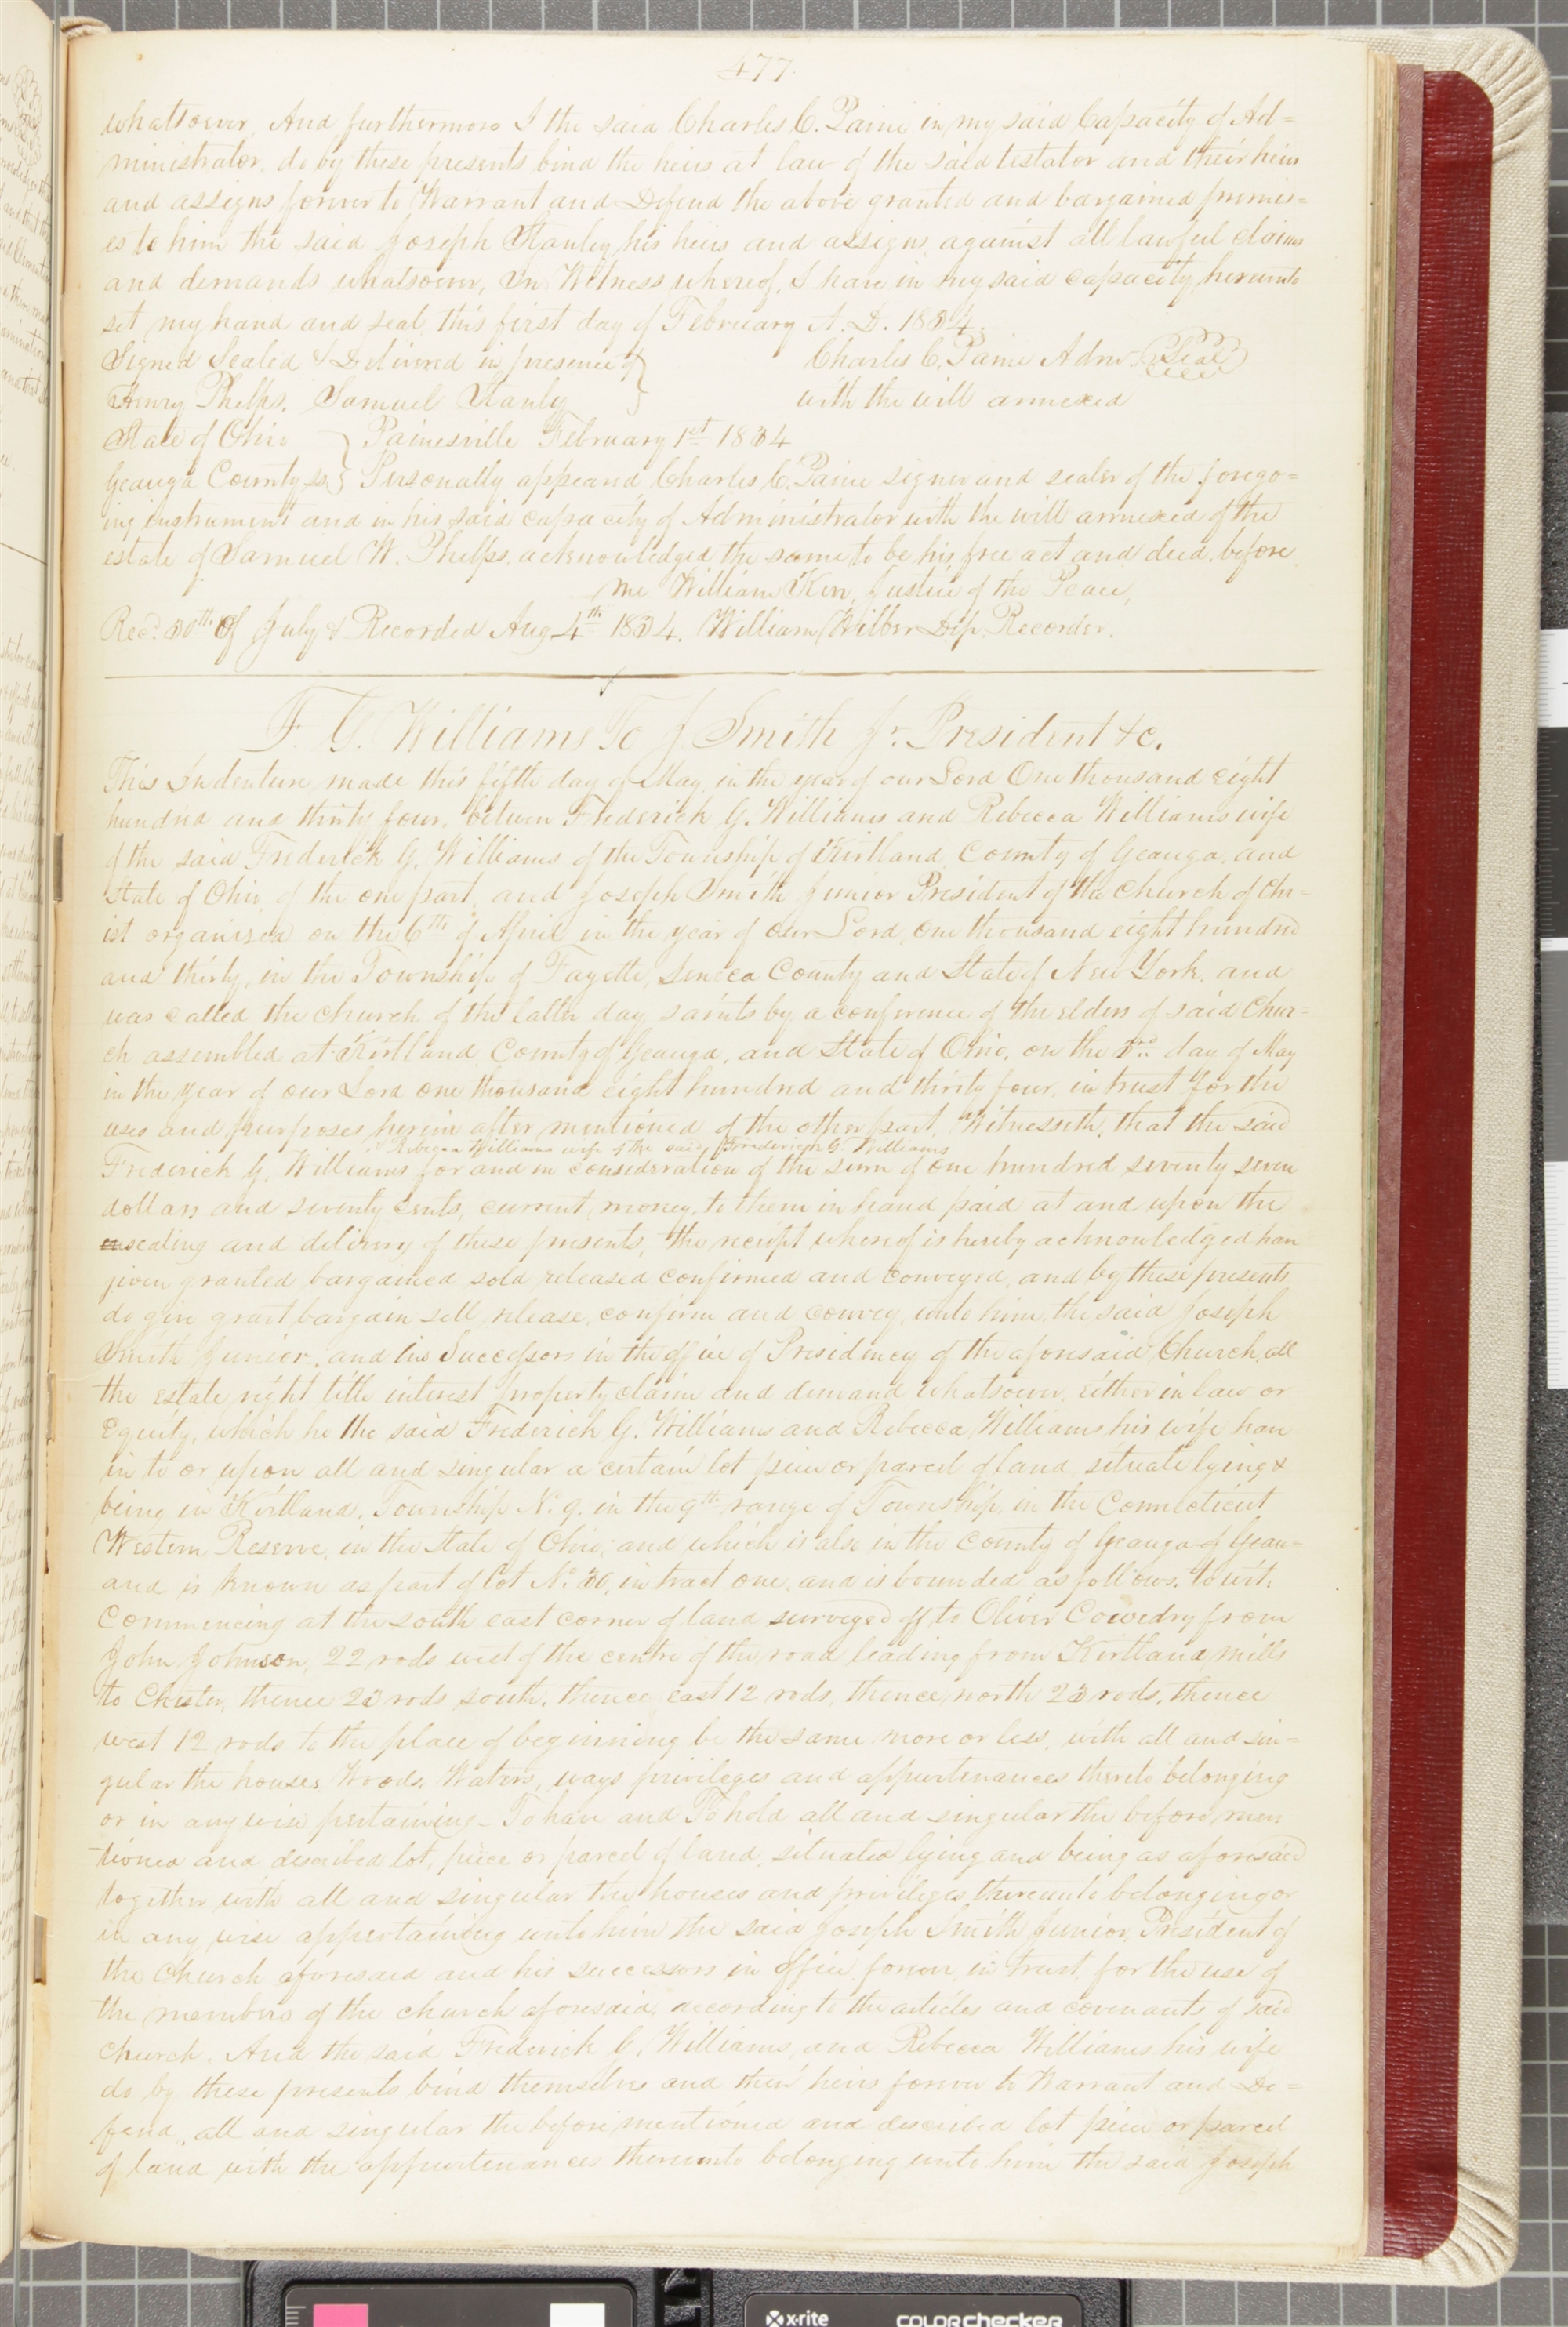 477.
whatsoever, And furthermore I the said Charles C. Paine in my said Capacity of Ad=
ministrator, do by these presents bind the heirs at law of the said testator and their heirs
and assigns forever to Warrant and Defend the above granted and bargained premis=
es to him the said Joseph Stanley, his heirs and assigns, against all lawful claims
and demands whatsoever, In Witness whereof, I have in my said capacity, hereunto
set my hand and seal, this first day of February A. D. 1834.
Signed Sealed & Delivered in presence of } Charles C. Paine Admr. (Seal)
Henry Phelps. Samuel Stanly } with the will annexed
State of Ohio } Painesville February 1st 1834
Geauga County ss } Personally appeared Charles C. Paine signer and sealer of the forego=
ing instrument and in his said capacity of Administrator with the will annexed of the
estate of Samuel W. Phelps, acknowledged the same to be his free act and deed, before
me William Kerr, Justice of the Peace,
Recd. 30th of July & Recorded Aug 4th 1834. William Wilber Dep. Recorder.
F. G. Williams To J Smith Jr. President &c.
This Indenture made this fifth day of May in the year of our Lord One thousand eight
hundred and thirty four, between Frederick G. Williams and Rebecca Williams wife
of the said Frederick G. Williams of the Township of Kirtland, County of Geauga, and
State of Ohio, of the one part, and Joseph Smith Junior President of the Church of Chr=
ist organised on the 6th of April in the year of our Lord, one thousand eight hundred
and thirty, in the Township of Fayette, Seneca County and State of New York, and
was called the church of the latter day saints by a conference of the elders of said Chur=
ch assembled at Kirtland County of Geauga, and State of Ohio, on the 3rd. day of May
in the year of our Lord one thousand eight hundred and thirty four, in trust for the
uses and purposes herein after mentioned of the other part, Witnesseth, that the said
Rebecca Williams wife of the said Frederick G. Williams
Frederick G. Williams for and in consideration of the sum of one hundred seventy seven
dollars and seventy cents, current money, to them in hand paid at and upon the
ensealing and delivery of these presents, the receipt whereof is hereby acknowledged have
given granted bargained sold released confirmed and conveyed, and by these presents
do give grant bargain sell, release, confirm and convey, unto him, the said Joseph
Smith Junior, and his Successors in the office of Presidency of the aforesaid Church, all
the estate right title interest property claim and demand whatsoever, either in law or
Equity, which he the said Frederick G. Williams and Rebecca Williams his wife have
in to or upon all and singular a certain lot piece or parcel of land, situate lying &
being in Kirtland, Township No. 9. in the 9th range of Township in the Connecticut
Western Reserve, in the State of Ohio; and which is also in the County of Geauga of Geau=
and is known as part of lot No. 30, in tract one, and is bounded as follows, to wit:
Commencing at the south east corner of land surveyed off to Oliver Cowedry from
John Johnson, 22 rods west of the centre of the road leading from Kirtland mills
to Chester, thence 23 rods south, thence east 12 rods, thence north 23 rods, thence
west 12 rods to the place of beginning be the same more or less, with all and sin=
gular the houses Woods, Waters, ways privileges and appurtenances thereto belonging
or in any wise pertaining. To have and To hold all and singular the before men=
tioned and described lot, piece or parcel of land, situated lying and being as aforesaid
together with all and singular the houses and privileges thereunto belonging or
in any wise appertaining unto him the said Joseph Smith Junior, President of
the Church aforesaid and his successors in office, forever, in trust, for the use of
the members of the church aforesaid, according to the articles and covenants of said
church. And the said Frederick G. Williams, and Rebecca Williams his wife
do by these presents bind themselves and their heirs forever to Warrant and De=
fend, all and singular the before mentioned and described lot piece or parcel
of land with the appurtenances thereunto belonging unto him the said Joseph
x-rite
colorchecker